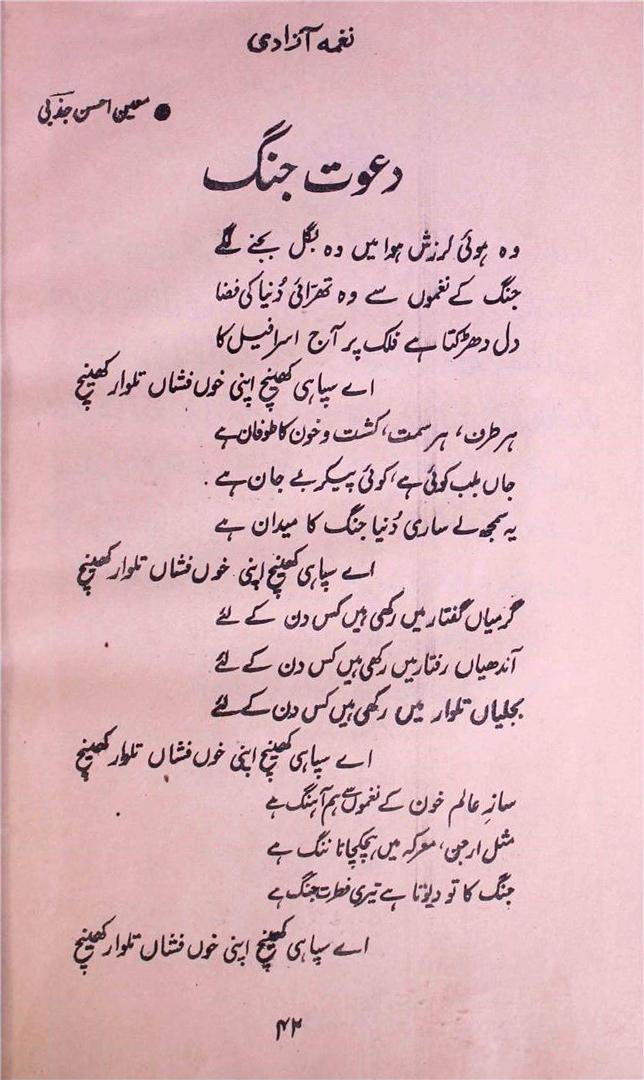 نغمہ آزادی
● معین احسن جذبی
دعوت جنگ
وہ ہوئی لرزش ہوا میں وہ بگل بجنے لگے
جنگ کے نغموں سے وہ تھرّائی دُنیا کی فضا
دل دھڑکتا ہے فلک پر آج اسرافیل کا
اے سپاہی کھینچ اپنی خوں فشاں تلوار کھینچ
ہر طرف، ہر سمت، کشت و خون کا طوفان ہے
جاں بلب کوئی ہے، کوئی پیکر بے جان ہے .
یہ سمجھ لے ساری دُنیا جنگ کا میدان ہے
اے سپاہی کھینچ اپنی خوں فشاں تلوار کھینچ
گرمیاں گفتار میں رکھی ہیں کس دن کے لئے
آندھیاں رفتار میں رکھی ہیں کس دن کے لئے
بجلیاں تلوار میں رکھی ہیں کس دن کے لئے
اے سپاہی کھینچ اپنی خوں فشاں تلوار کھینچ
سازِ عالم خون کے نغموں سے ہم آہنگ ہے
مثل ارجن، معرکہ میں ہچکچانا ننگ ہے
جنگ کا تو دیوتا ہے تیری فطرت جنگ ہے
اے سپاہی کھینچ اپنی خوں فشاں تلوار کھینچ
۴۲